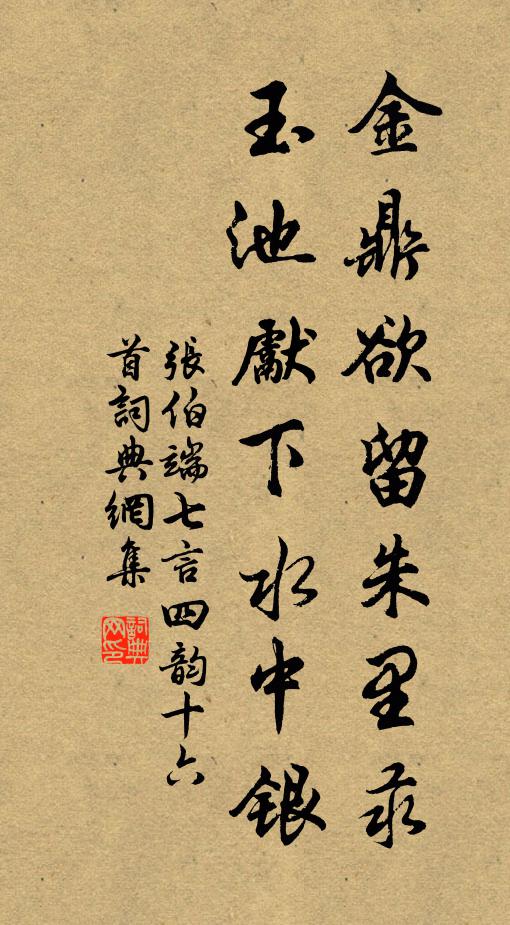 金鼎欲留朱里汞
玉池獻下水中銀
張伯端七言四韵十六
首詞典網集
詞典
网印